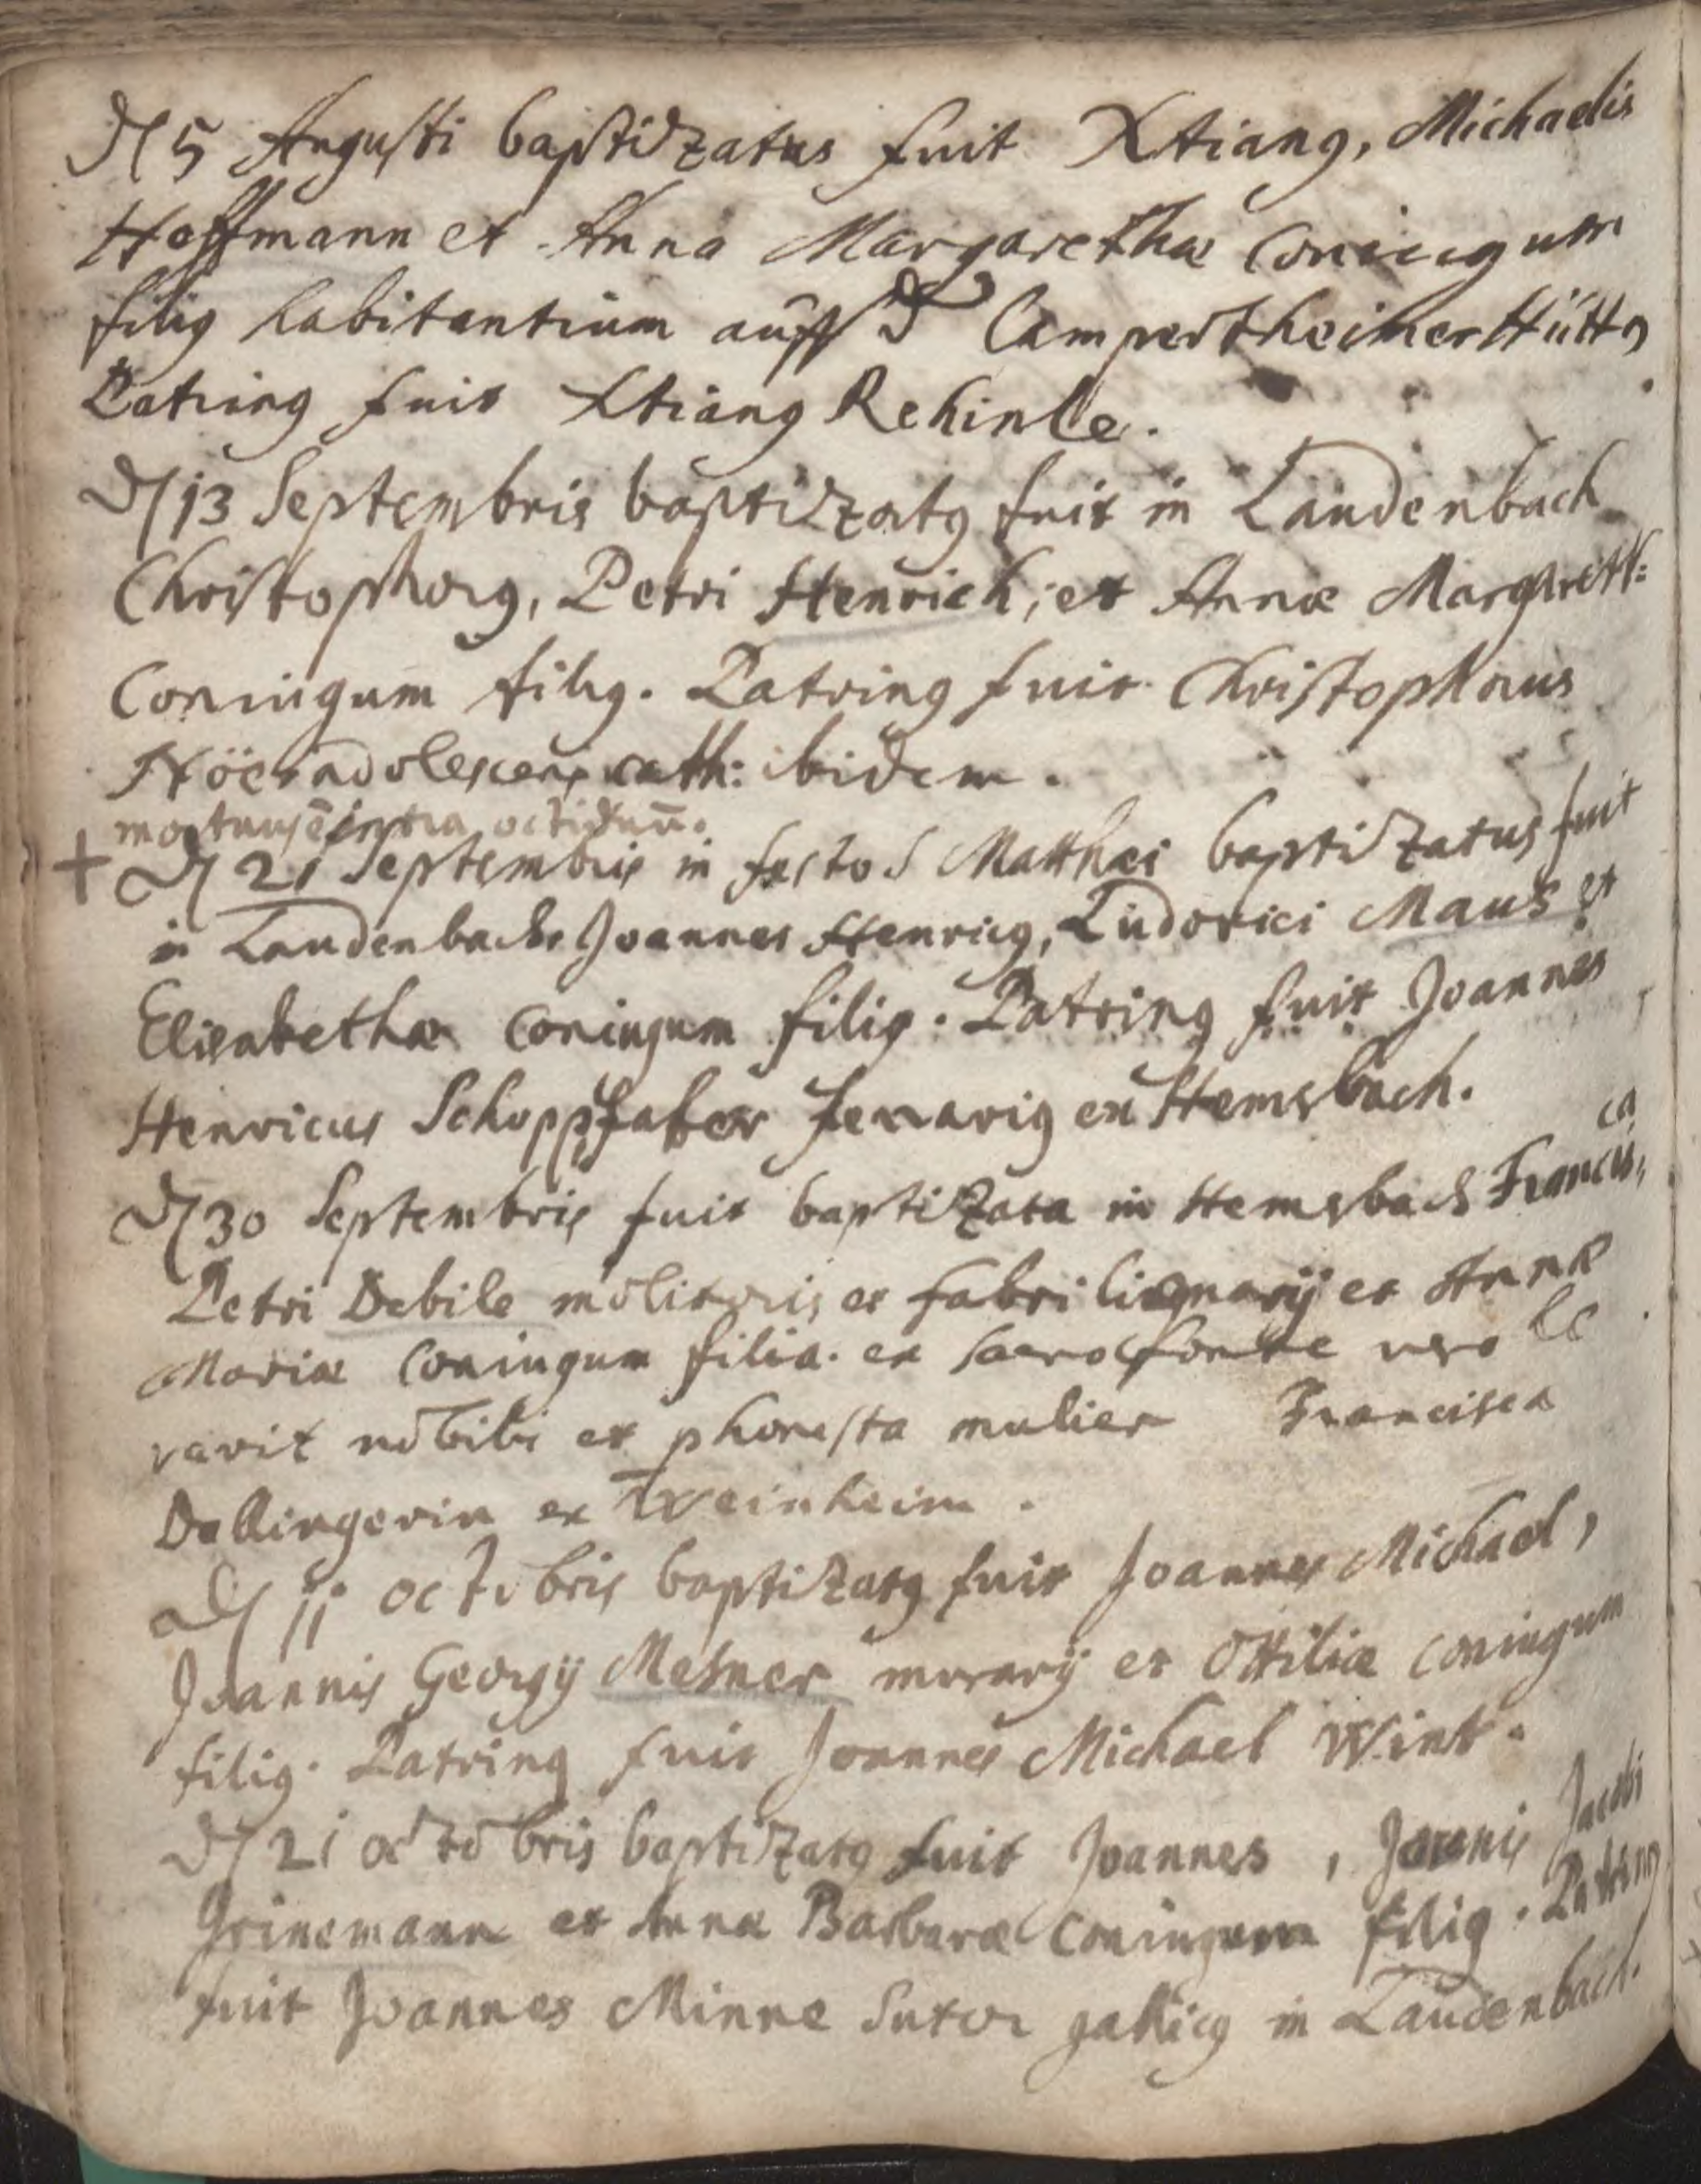 5 Augusti baptizatus fuit Xtiang, Michaelis
Hoffmann et Anna Margarethæ coniugum
filig habitantium auff d Lampertheimer Hütt,
Patring fuit Xtiang Rehinle.
13 Septembris baptizatg fuit in Laudenbach
Christophorg, Petri Henrich, et Annæ Margreth:
Coniugum filig. Patring fuit Christophorus
adolescens cath: ibidem.
mortuus ē intra octiduū.
+ 21 Septembris in festo S Matthæi baptizatus fuit
in Laudenbach Joannes Henricg, Ludovici Maus et
Elisabethæ coniugum filig. Patring fuit Joannes
Henricus Schopp faber ferrarig ex Hemsbach.
ca
30 Septembris fuit baptizata in Hemsbach Francis,
Petri Debile molitoris et fabri lignarij et Annæ
Mariæ Coniugum filia. ex sacro fonte vero le
vavit nobilis et phonesta mulier Francisca
Dallingerin ex Weinheim.
11 octobris baptizatg fuit Joannes Michael,
Joannis Georgij Mesner murarij et Ottiliæ coniugum
filig. Patring fuit Joannes Michael Wink.
21 octobris baptizatg fuit Joannes, Joannis Jacobi
Grinemann et Annæ Barbaræ coniugum filig. Patring
fuit Joannes Minne Sutor gallicg in Laudenbach.